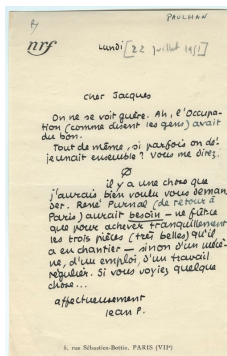 PAULHAN
nrf
Lundi [22 juillet 1951]
cher Jacques
On ne se voit guère. Ah, l'Occupa-
tion (comme disent les gens) avait
du bon.
Tout de même, si parfois on dé-
jeunait ensemble ? Vous me direz.
il y a une chose que
j'aurais bien voulu vous deman
der. René Purnal (de retour à
Paris) aurait besoin — ne fût-ce
que pour achever tranquillement
les trois pièces (très belles) qu'il
a en chantier — sinon d'un mécè-
ne, d'un emploi, d'un travail
régulier. Si vous voyiez quelque
chose...
affectueusement
Jean P.
5, rue Sébastien-Bottin, PARIS (VIIe)